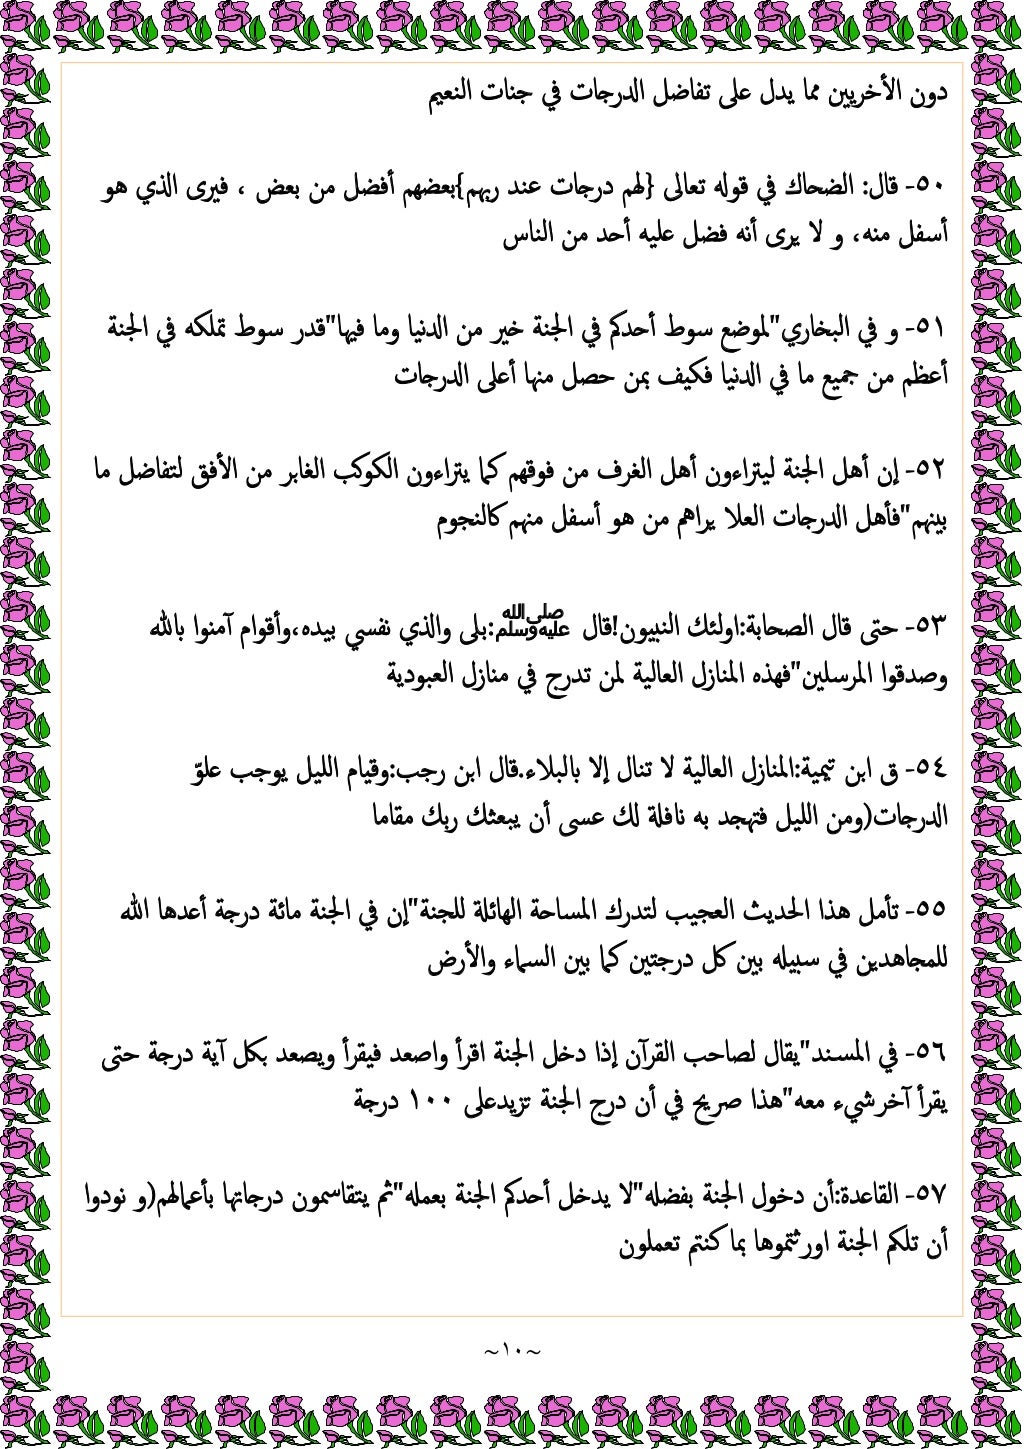 دون الأخريين مما يدل على تفاضل الدرجات في جنات النعيم
٥٠- قال: الضحاك في قوله تعالى {لهم درجات عند ربهم}بعضهم أفضل من بعض ، فيرى الذي هو
أسفل منه، و لا يرى أنه فضل عليه أحد من الناس
٥١- و في البخاري"لموضع سوط أحدكم في الجنة خير من الدنيا وما فيها"قدر سوط تملكه في الجنة
أعظم من جميع ما في الدنيا فكيف بمن حصل منها أعلى الدرجات
٥٢- إن أهل الجنة ليتراءون أهل الغرف من فوقهم كما يتراءون الكوكب الغابر من الأفق لتفاضل ما
بينهم"فأهل الدرجات العلا يراهم من هو أسفل منهم كالنجوم
٥٣- حتى قال الصحابة:اولئك النبيون!قال ﷺ:بلى والذي نفسي بيده،وأقوام آمنوا بالله
وصدقوا المرسلين"فهذه المنازل العالية لمن تدرج في منازل العبودية
٥٤- ق ابن تيمية:المنازل العالية لا تنال إلا بالبلاء.قال ابن رجب:وقيام الليل يوجب علوّ
الدرجات(ومن الليل فتهجد به نافلة لك عسى أن يبعثك ربك مقاما
٥٥- تأمل هذا الحديث العجيب لتدرك المساحة الهائلة للجنة"إن في الجنة مائة درجة أعدها الله
للمجاهدين في سبيله بين كل درجتين كما بين السماء والأرض
٥٦- في المسند"يقال لصاحب القرآن إذا دخل الجنة اقرأ واصعد فيقرأ ويصعد بكل آية درجة حتى
يقرأ آخرشيء معه"هذا صريح في أن درج الجنة تزيدعلى ١٠٠ درجة
٥٧- القاعدة:أن دخول الجنة بفضله"لا يدخل أحدكم الجنة بعمله"ثم يتقاسمون درجاتها بأعمالهم(و نودوا
أن تلكم الجنة اورثتموها بما كنتم تعملون
~١٠~